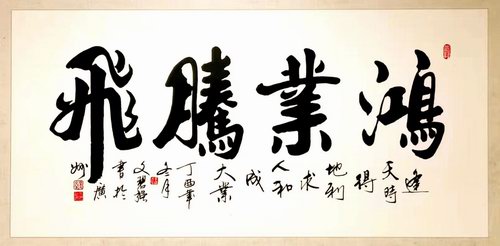 鴻業騰飛
逢
天時
得
地利
求
人和
成
大業
丁酉年
冬月
書於
廣
州